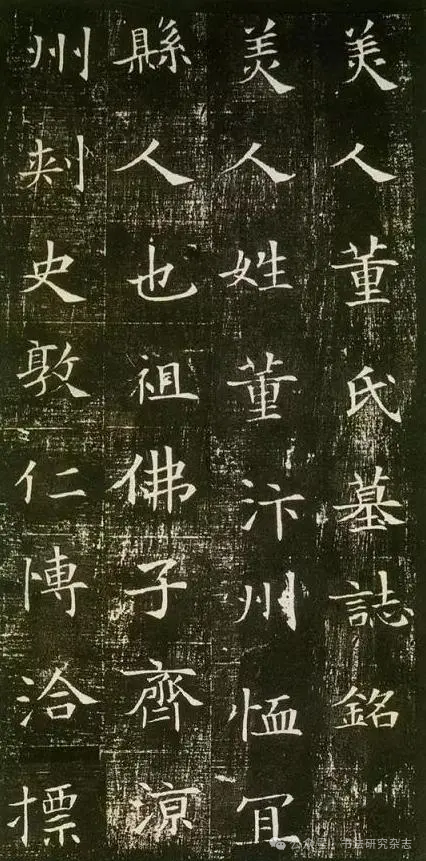 美人董氏墓誌銘
美人姓董汴州恤冝
縣人也祖佛子齊涼
州刺史敦仁愽洽標
公众号 · 书法研究杂志